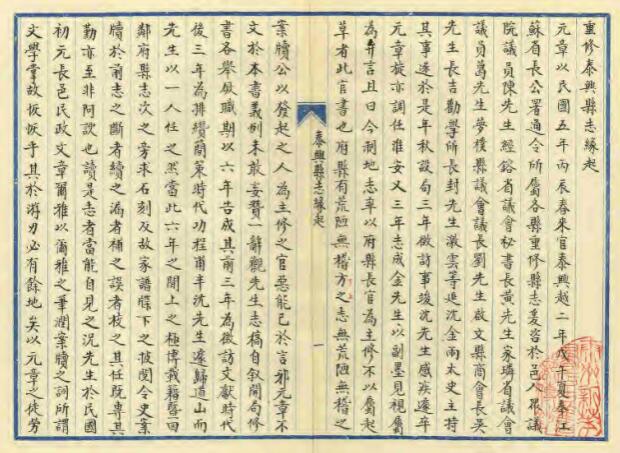 重修泰興縣志緣起
元章以民國五年丙辰春來官泰興越二年戊午夏奉江
蘇省長公署通令所屬各縣重修縣志爰咨於邑人眾議
院議員陳先生經鎔省議會秘書長黃先生家璘省議會
議員葛先生夢樸縣議會議長劉先生啟文縣商會長吳
先生長吉勸學所長封先生激雲等延沈金兩太史主持
其事遂於是年秋設局三年徵訪事竣沈先生感疾遽卒
元章旋亦調任淮安又三年志成金先生以副墨見視屬
為弁言且曰今制地志率以府縣長官為主修不以屬起
草者此官書也府縣有荒陋無稽方之志無荒陋無稽之
泰興縣志緣起
一
案牘公以發起之人為主修之官惡能已於言邪元章不
文於本書義例未敢妄贊一辭觀先生志稿自敘開局修
書各舉厥職期以六年告成其前三年為徵訪文獻時代
後三年為排纘簡策時代功程甫半沈先生遽歸道山而
先生以一人任之然當此六年之間上之極博載籍暨四
鄰府縣志次之旁求石刻及故家譜牒下之披閱令史案
牘於前志之斷者續之漏者補之誤者校之其任既專其
勤亦至非阿歎也讀是志者當能自見之況先生於民國
初元長邑民政文章爾雅以爾雅之筆潤案牘之詞所謂
文學掌故恢恢乎其於游刃必有餘地矣以元章之徒勞